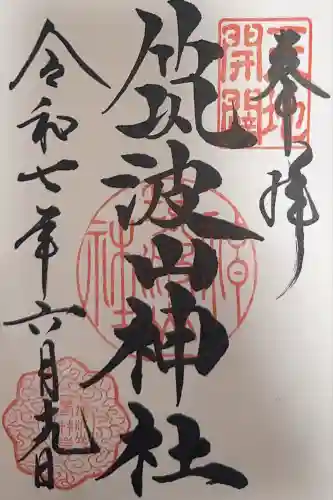 奉拝
天地
開闢
筑波山神社
令和七年六月九日